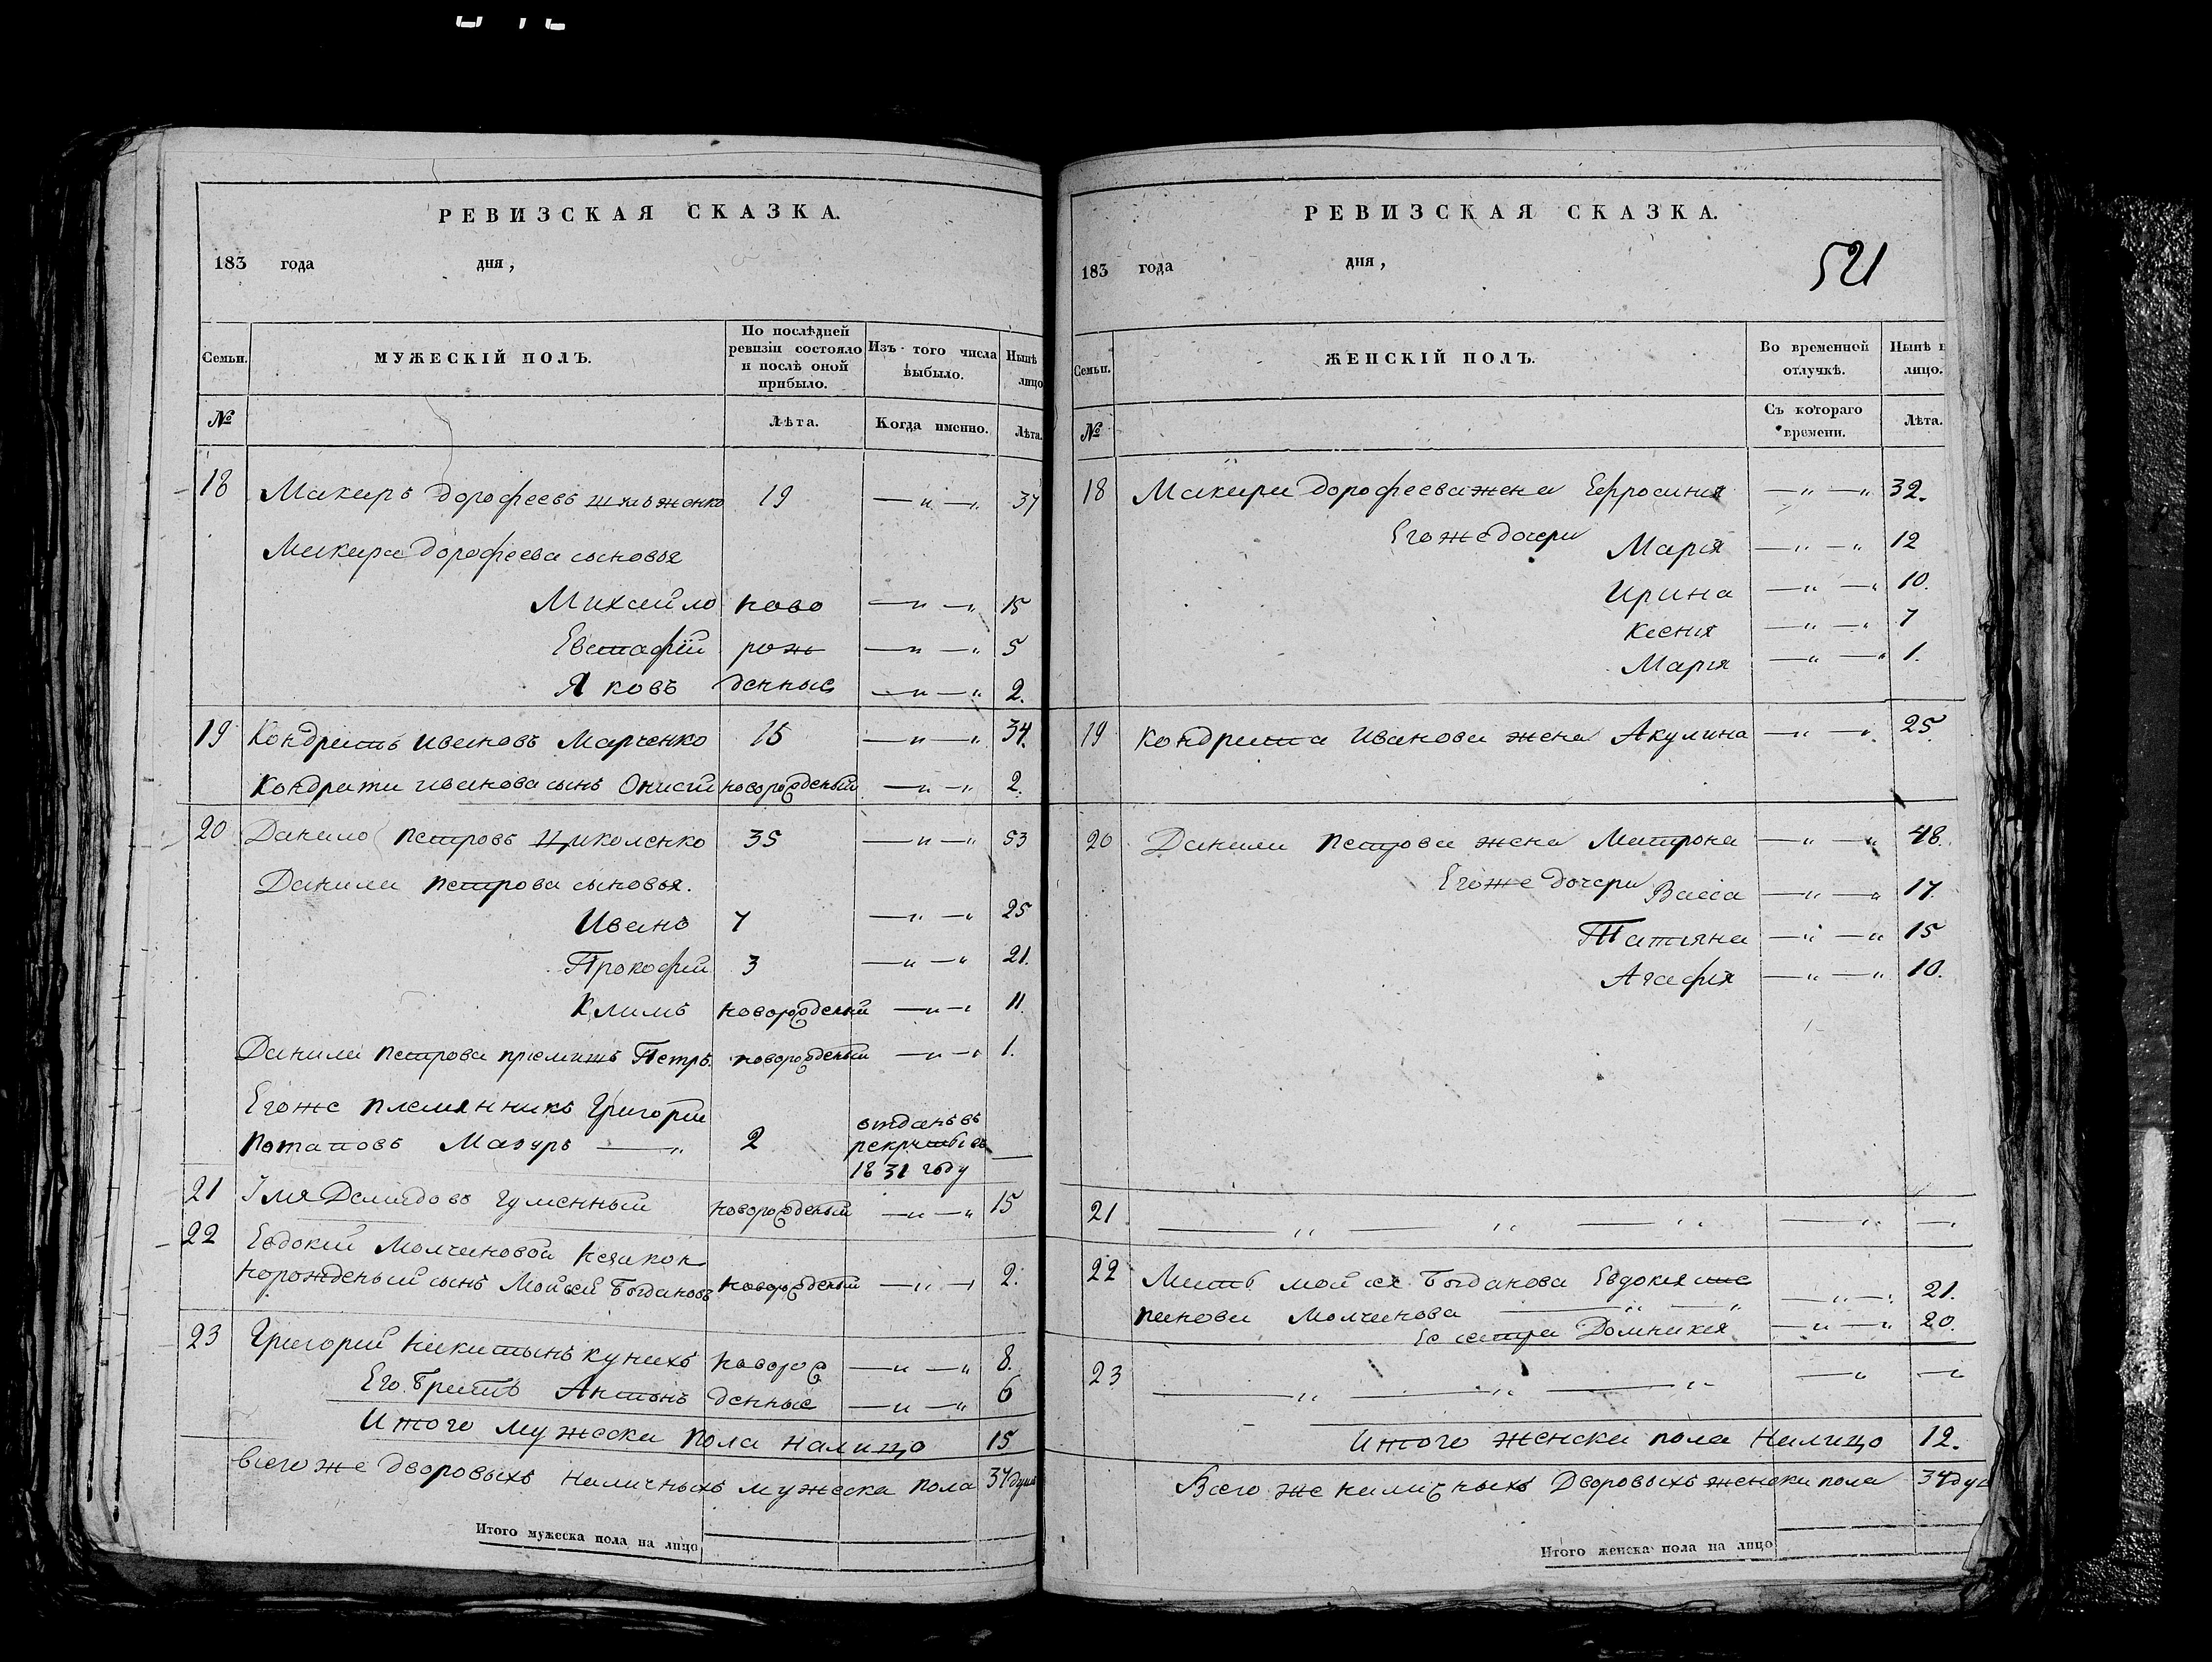 РЕВИЗСКАЯ СКАЗКА.
183 года дня,
Семьи. МУЖЕСКІЙ ПОЛЪ. По послѣдней ревизіи состояло и послѣ оной прибыло. Изъ того числа выбыло. Нынѣ лицо
№ Лѣта. Когда именно. Лѣта.
18 Макаръ Дорофеевъ 19 — „ — „ 37
Макара Дорофеева сыновья
Михайло ново — „ — „ 15
Евстафій рож — „ — „ 5
Яковъ денные — „ — „ 2.
19 Кондратъ Ивановъ Марченко 15 — „ — „ 34.
Кондрата Иванова сынъ Онисій новорожденый — „ — „ 2.
20 Данило Петровъ Циколенко 35 — „ — „ 53
Данила Петрова сыновья.
Иванъ 7 — „ — „ 25
Прокофій 3 — „ — „ 21.
Климъ новорожденый — „ — „ 11.
Данила Петрова пріемишъ Петръ. новорожденый — „ — „ 1.
Егоже племянникъ Григорій
Потаповъ Мазуръ — „ 2 отданъ въ рекруты въ 1831 году —
21 Демидовъ Гуменный новорожденый — „ — „ 15
22 Евдокіи Молчановой незакон
норожденый сынъ Мойсей Богдановъ новорожденый — „ — „ 2.
23 Григорій Никитынъ новорож — „ — „ 8.
Его братъ Антонъ денные — „ — „ 6
Итого мужеска пола налицо 15
Всего же дворовыхъ наличныхъ мужеска пола 37 душъ
Итого мужеска пола на лицо
РЕВИЗСКАЯ СКАЗКА.
521
183 года дня,
Семьи. ЖЕНСКІЙ ПОЛЪ. Во временной отлучкѣ. Нынѣ н лицо.
№ Съ котораго времени. Лѣта.
18 Макара Дорофеева жена Ефросинія — „ — „ 32.
Егоже дочери Марія — „ — „ 12
Ирина — „ — „ 10.
Ксенія — „ — „ 7
Марія — „ — „ 1.
19 Кондрата Иванова жена Акулина — „ — „ 25.
20 Данила Петрова жена Матрона — „ — „ 48.
Егоже дочери Васса — „ — „ 17.
Татіяна — „ — „ 15
Агафія — „ — „ 10.
21 — „ — „ — „ — „ —
22 Мать Мойсея Богданова Евдокія сте
панова Молчанова — „ — „ — „ — „ 21.
Ее сестра Домникія — „ — „ 20.
23 — „ — „ — „ — „ —
Итого женска пола налицо 12.
Всего же наличныхъ дворовыхъ женска пола 34 ду
Итого женска пола на лицо